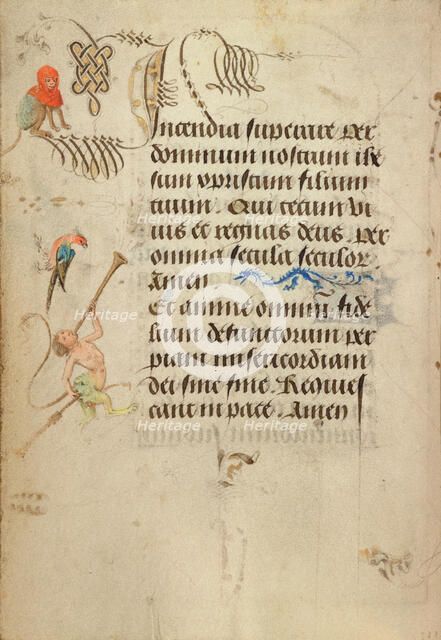 Incendia superare per
dominum nostrum ihe
sum xpristum filium
tuum. Qui tecum vi
uis et regnas deus. per
omnia secula seculor
Amen
Et anime omnium fide
lium defunctorum per
piam misericordiam
dei sine fine. Requies
cant in pace. Amen
Heritage Heritage Heritage
Heritage Heritage Heritage
Heritage Heritage Heritage